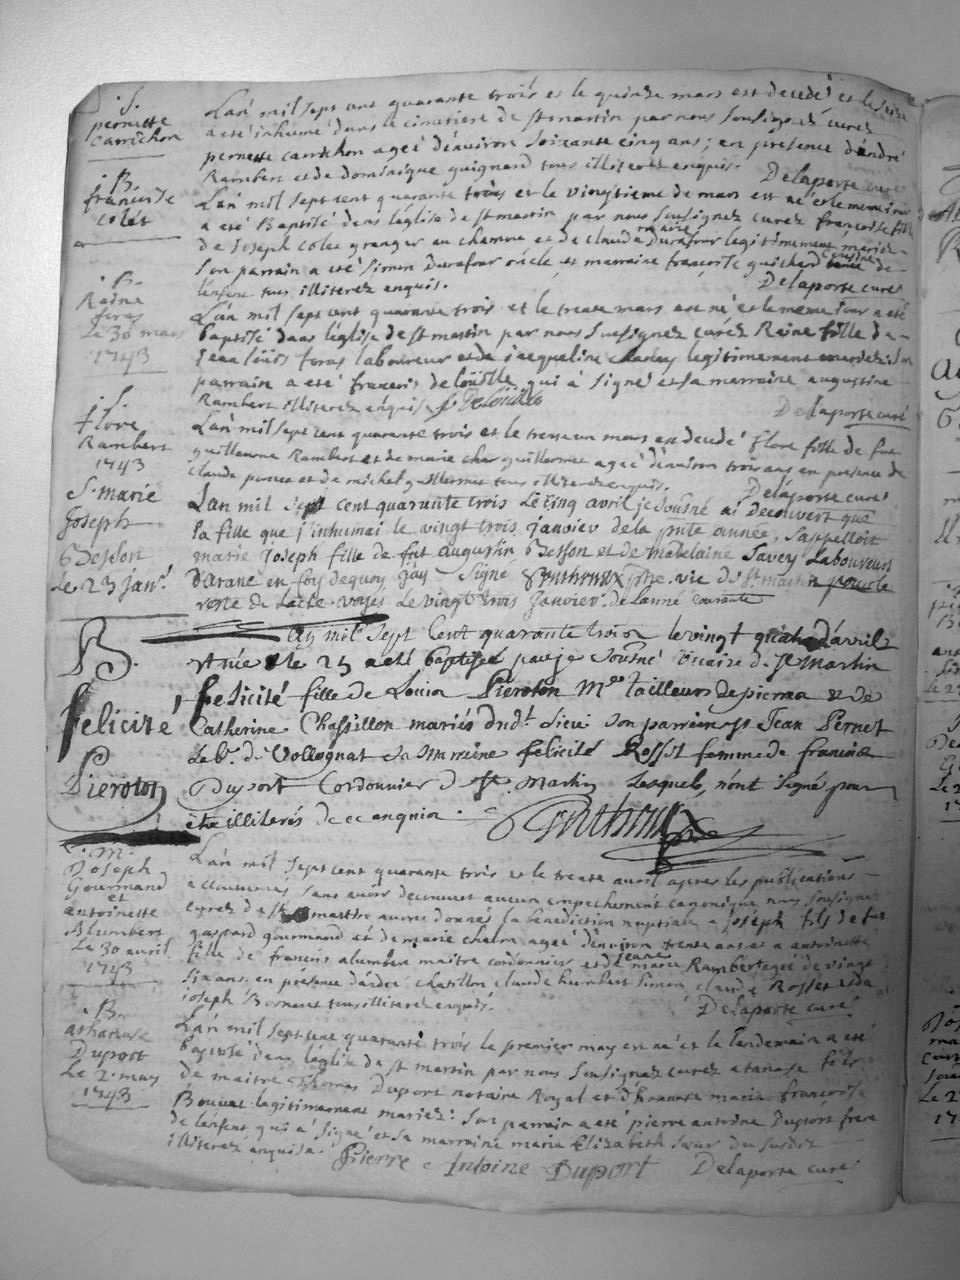 .S.
pernette
carrichon
L'an mil sept cent quarante trois et le quinze mars est decedé et le seize
a été inhumé dans le cimetiere de st martin par nous soussigné curé
pernette carrichon agée d'environ soixante cinq ans; en presence d'andré
Rambert et de dominique guignard tous illiterés enquis. Delaporte curé
.B.
françoise
colet
L'an mil sept cent quarante trois et le vingtieme de mars est né et le meme jour
a été Baptisé dans l'eglise de st martin par nous soussignez curez françoise fille
de Joseph colet granger au chamme et de claudamarie Durafour legitimement mariez
son parrain a eté simon Durafour oncle et marraine françoise guichard cousine de
l'enfent tous illiterez enquis. Delaporte curé
.B.
Raine
foras
Le 30 mars
1743
L'an mil sept cent quarante trois et le trente mars est né et le meme jour a eté
baptisé dans l'eglise de st martin par nous soussignez curez Reine fille de
Jean louis foras laboureur et de jacqueline legitimement mariez: son
parrain a eté francois delouille qui a signé et sa marraine augustine
Rambert illiterez enquis f Delouille
Delaporte curé
.S.
flore
Rambert
1743
L'an mil sept cent quarante trois et le trente un mars est decedé flore fille de feu
guillerme Rambert et de marie agée d'environ trois ans en presence de
claude et de michel guillermet tous illiterez enquis. Delaporte curé
S. marie
Joseph
Besson
Le 23 janv.
Lan mil sept cent quarante trois Le cinq avril je sousné ai decouvert que
la fille que j'inhumai le vingt trois janvier de la pnte année, sappelloit
marie Joseph fille de fut augustin Besson et de madelaine Savey Laboureur
d'arane en foy dequoy jay signé Ponthoux ptre. vic. de St martin pour le
reste de lacte voyés Le vingt trois janvier de lanné courante
B.
felicité
Pieroton
L'an mil Sept Cent quarante trois le vingt quatre d'avril
est née et le 25 a eté baptisée par je sousné vicaire de St Martin
felicité fille de Louis Pieroton Mre tailleurs de pierra et de
Catherine Chassillon mariés dudt. lieu son parrein est Jean Pernet
Le bt. de Vollognat sa marreine felicité Rosset femme de francois
Duport Cordonnier de St. Martin Lesquels n'ont signé pour
être illiterés de ce enquis. Ponthoux
.M.
Joseph
Gourmand
et
antoinette
alumbert
Le 30 avril
1743
L'an mil sept cent quarante trois et le trente avril apres les publications
accoutumes sans avoir decouvert aucun empechement canonique nous soussigné
curez de st martin avons donnés la benediction nuptiale a joseph fils de feu
gaspard gourmand et de marie agée d'environ trente ans et a antoinette
fille de francois alumbert maitre cordonnier et de jeanne marie Rambert agée de vingt
six ans en présence d'andré chatillon claude humbert simon claude Rosset et de
joseph Bornet tous illiterez enquis. Delaporte curé
.B.
athanase
Duport
Le 2. may
1743
L'an mil sept cent quarante trois le premier may est né et le lendemain a eté
baptisé dans l'église de st martin par nous soussignez curez atanase fils
de maitre Thomas Duport notaire Royal et d'honnete marie françoise
Bouvet legitimement mariez: son parrain a eté pierre antoine Duport frere
de l'enfent qui a signé et sa marraine marie Elizabeth sœur du susdit
illiterez enquise Pierre Antoine Duport Delaporte curé